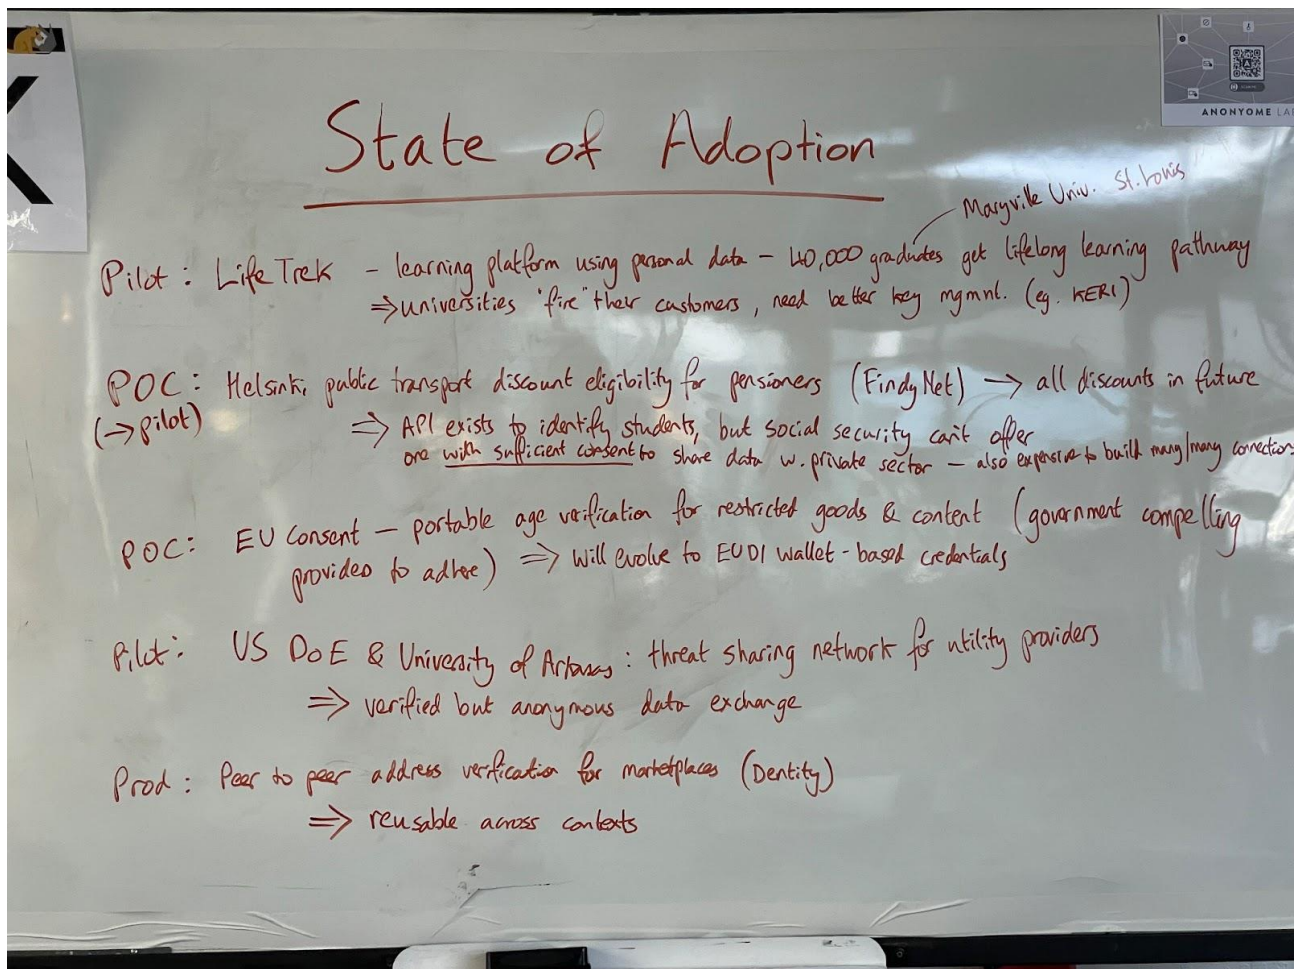 State of Adoption
Maryville Univ. St. Louis
Pilot: LifeTrek - learning platform using personal data - 40,000 graduates get lifelong learning pathway
⇒ universities "fire" their customers, need better key mgmnt. (eg. KERI)
POC: Helsinki public transport discount eligibility for pensioners (FindyNet) → all discounts in future
(→ pilot)
⇒ API exists to identify students, but social security can't offer
one with sufficient consent to share data w. private sector - also expensive to build many/many connections
POC: EU Consent - portable age verification for restricted goods & content (government compelling
provides to adhere) ⇒ will evolve to EUDI wallet-based credentials
Pilot: US DoE & University of Arkansas: threat sharing network for utility providers
⇒ verified but anonymous data exchange
Prod: Peer to peer address verification for marketplaces (Dentity)
⇒ reusable across contexts
ANONYOME LA